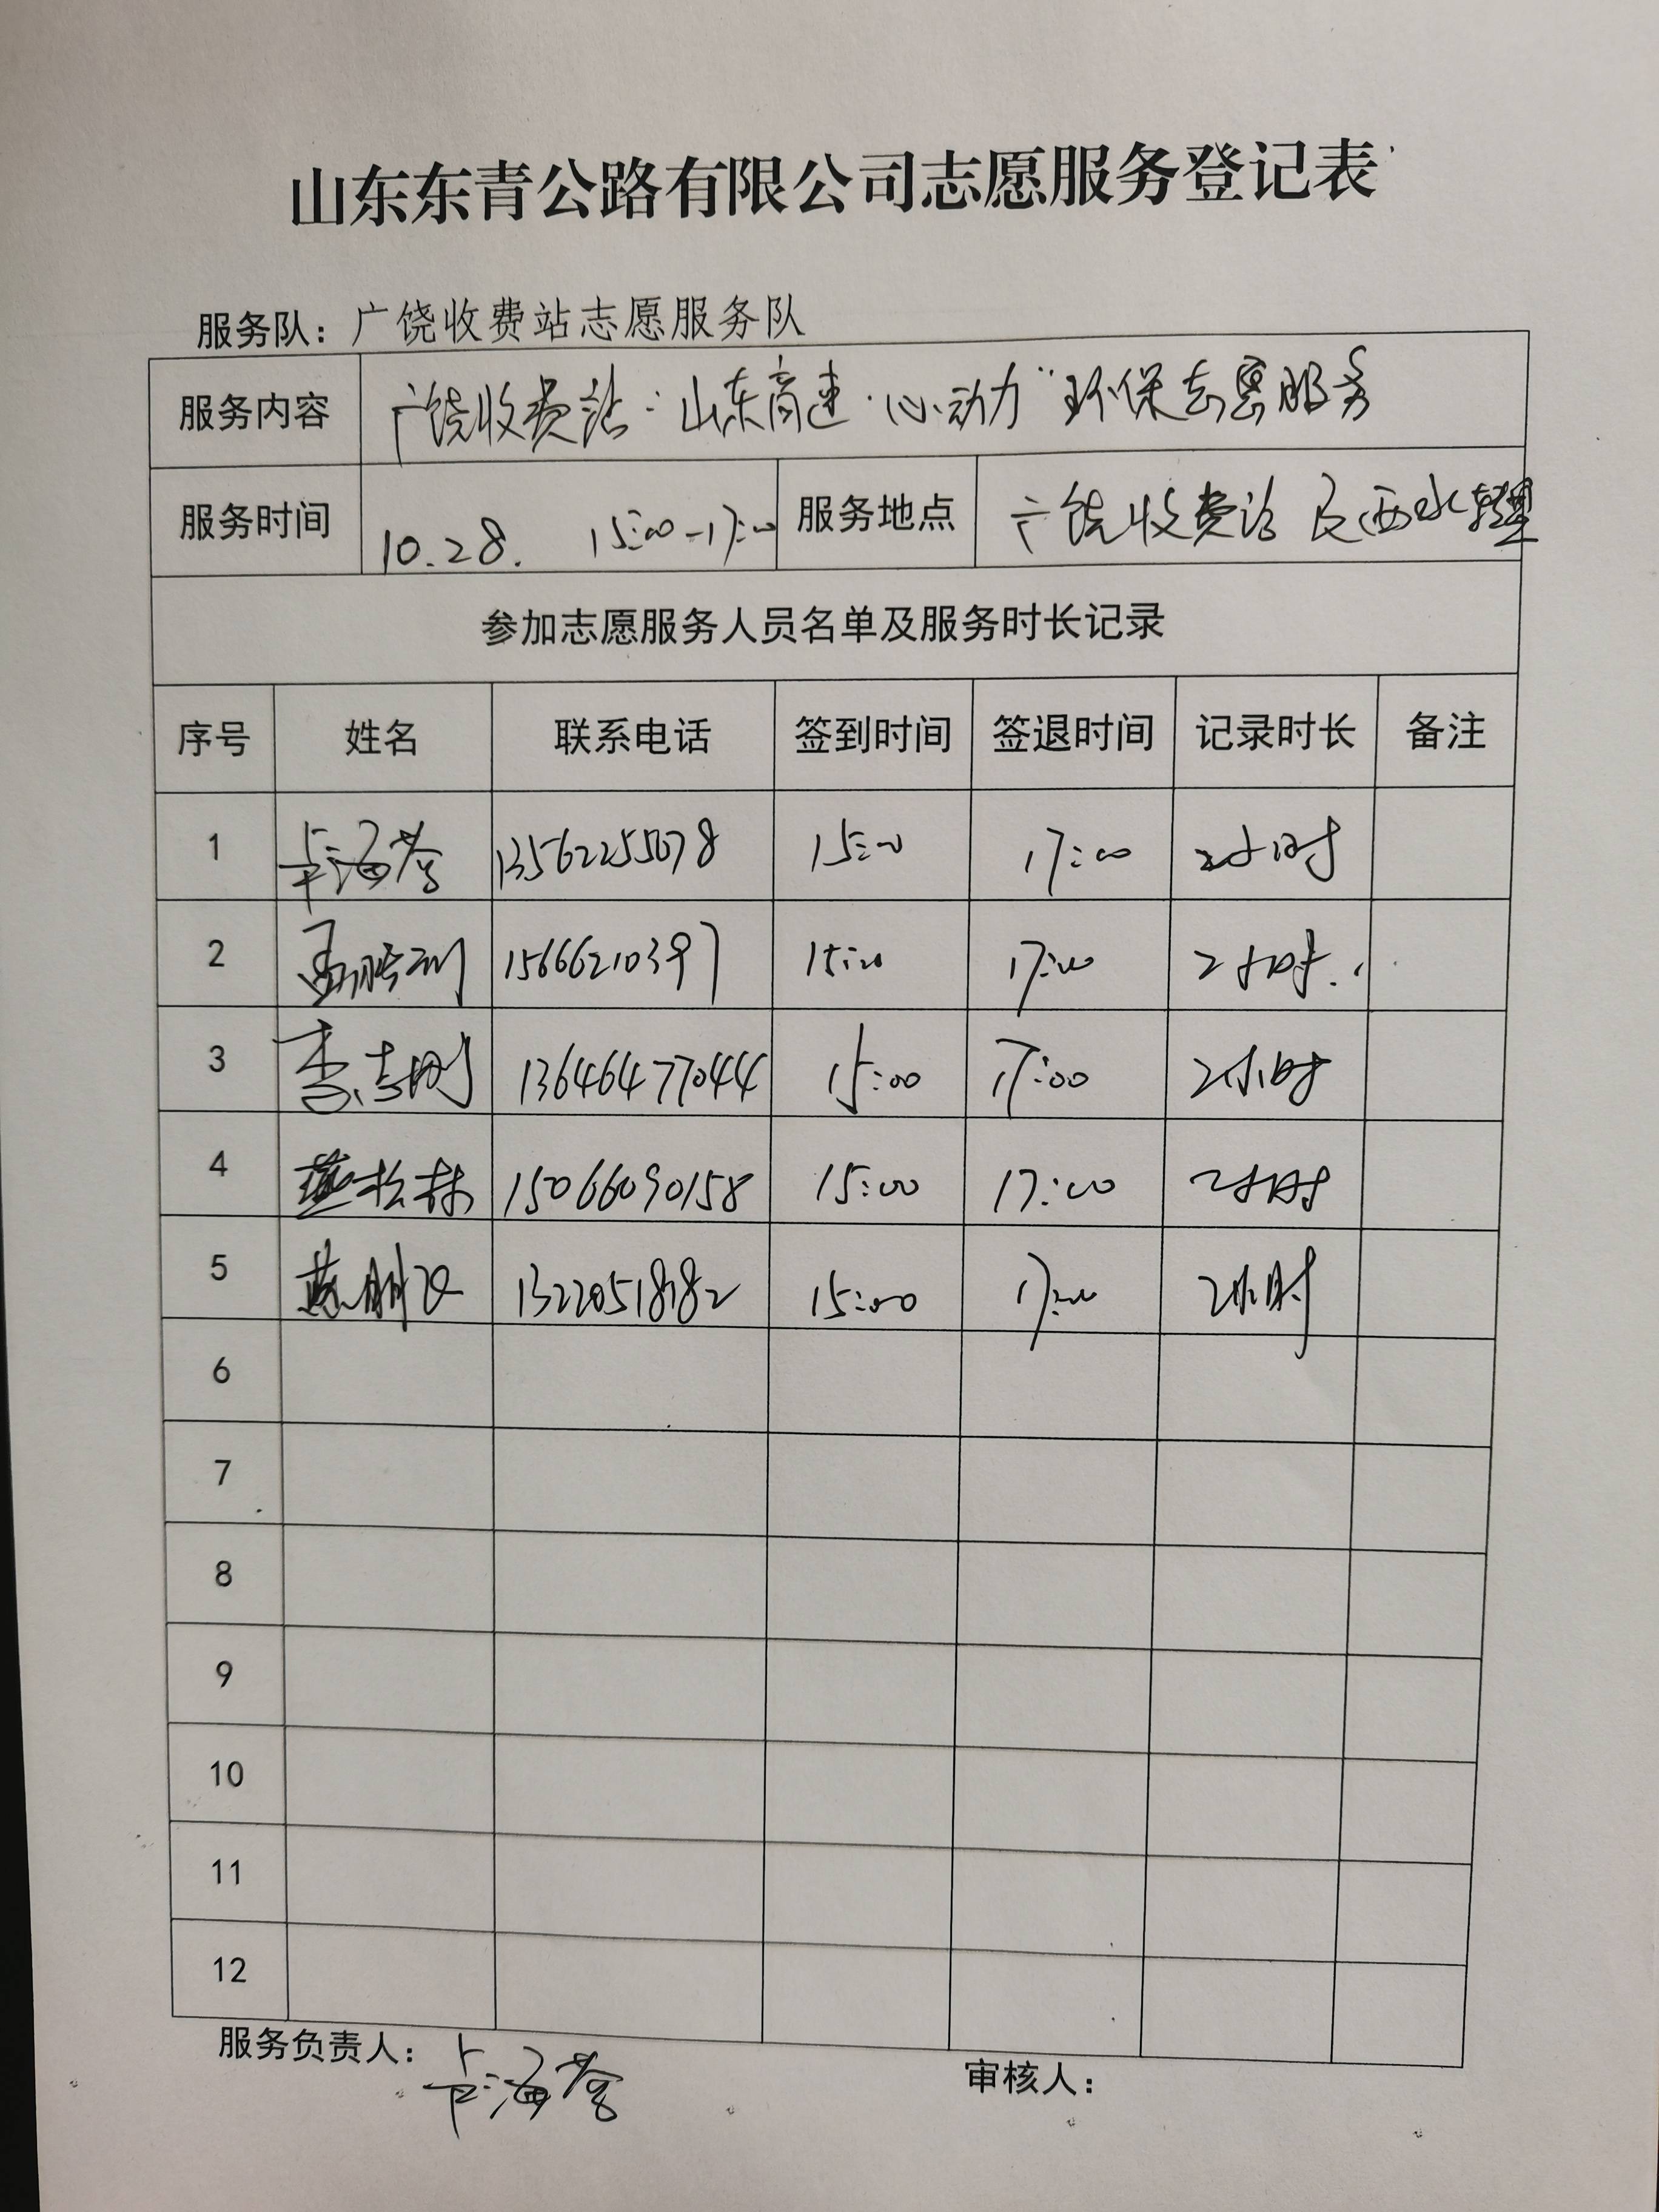 山东东青公路有限公司志愿服务登记表
服务队：广饶收费站志愿服务队
服务内容 广饶收费站“山东高速·心动力”环保志愿服务
服务时间 10.28. 15:00-17:00 服务地点 广饶收费站及西水
参加志愿服务人员名单及服务时长记录
序号 姓名 联系电话 签到时间 签退时间 记录时长 备注
1 13562255078 15:00 17:00 2小时
2 15666210397 15:00 17:00 2小时.
3 李志刚 13646477044 15:00 17:00 2小时
4 燕松林 15066090158 15:00 17:00 2小时
5 13220518182 15:00 17:00 2小时
6
7
8
9
10
11
12
服务负责人： 审核人：